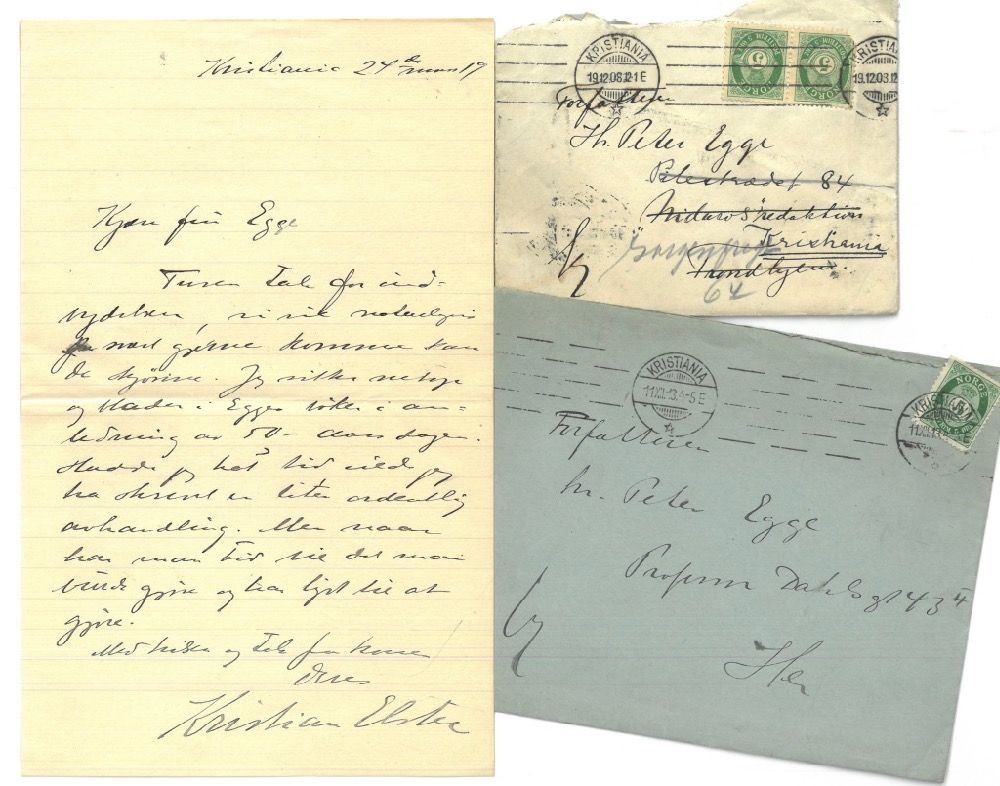 Kristiania 24de mars 19
Kjære fru Egge
Tusen tak for ind-
bydelsen, vi vil naturligvis
svært gjerne komme kan
De skjønne. Jeg sitter netop
og blader i Egges bøker i an-
ledning av 50-aars dagen.
Hadde jeg hat tid vilde jeg
ha skrevet en liten ordentlig
avhandling. Men naar
har man tid til det man
burde gjøre og har lyst til at
gjøre.
Med hilsen og tak fra konen
Deres
Kristian Elster
KRISTIANIA
19.12.03.12-1E
NORGE
5
NORGE
5
KRISTIANIA
19.12.03.12
Forfatteren
Hr. Peter Egge
Pilestrædet 84
Nidaros' redaktion
Kristiania
Trondhjem.
64
KRISTIANIA
11.XII.13.4-5E
NORGE
5
KRISTIANIA
11.XII.13
Forfatteren
hr. Peter Egge
Professor Dahls gt 43 4
Her